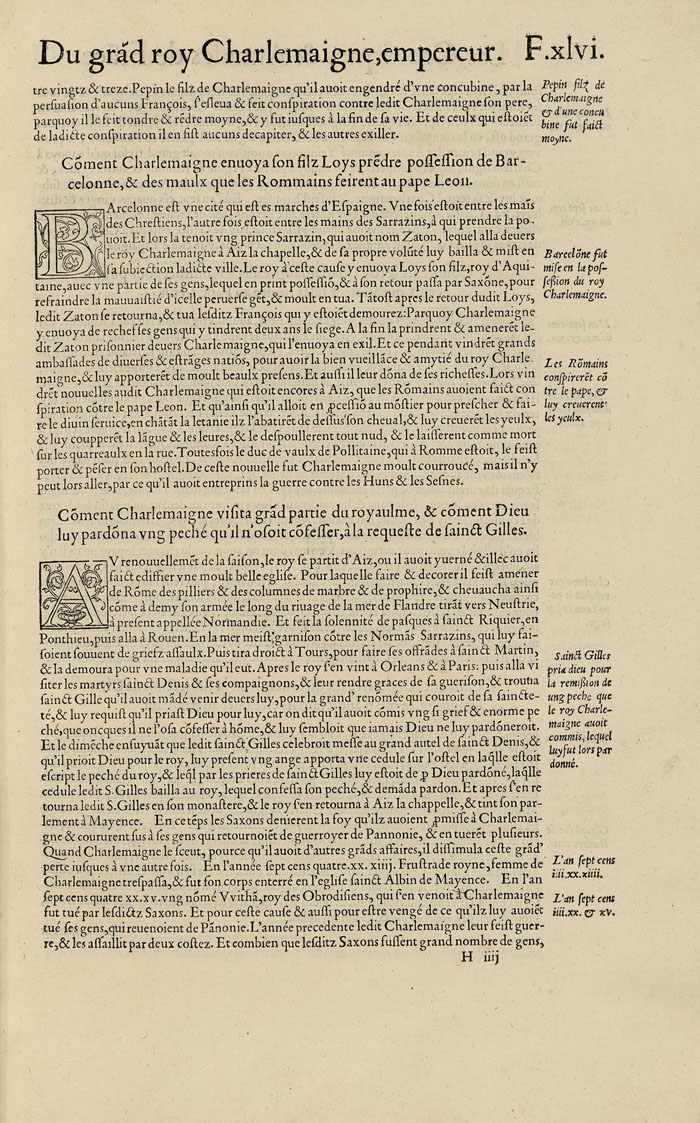 Du grãd roy Charlemaigne,empereur. F.xlvi.
tre vingtz & treze.Pepin le filz de Charlemaigne qu'il auoit engendré d'vne concubine, par la
persuasion d'aucuns François, s'esleua & feit conspiration contre ledit Charlemaigne son pere,
parquoy il le feit tondre & rẽdre moyne,& y fut iusques à la fin de sa vie. Et de ceulx qui estoiẽt
de ladicte conspiration il en fist aucuns decapiter, & les autres exiller.
Pepin filz de
Charlemaigne
& d'une concu
bine fut faict
moyne.
Cõment Charlemaigne enuoya son filz Loys prẽdre possession de Bar-
celonne,& des maulx que les Rommains feirent au pape Leon.
BArcelonne est vne cité qui est es marches d'Espaigne. Vne fois estoit entre les mais
des Chrestiens,l'autre fois estoit entre les mains des Sarrazins,à qui prendre la po-
uoit.Et lors la tenoit vng prince Sarrazin,qui auoit nom Zaton, lequel alla deuers
le roy Charlemaigne à Aiz la chapelle,& de sa propre volũté luy bailla & mist en
sa subiection ladicte ville.Le roy à ceste cause y enuoya Loys son filz,roy d'Aqui-
taine,auec vne partie de ses gens,lequel en print possessiõ,& à son retour passa par Saxõne,pour
refraindre la mauuaistié d'icelle peruerse gẽt,& moult en tua. Tãtost apres le retour dudit Loys,
ledit Zaton se retourna,& tua lesditz François qui y estoiẽt demourez:Parquoy Charlemaigne
y enuoya de rechef ses gens qui y tindrent deux ans le siege. A la fin la prindrent & amenerẽt le-
dit Zaton prisonnier deuers Charlemaigne,qui l'enuoya en exil.Et ce pendant vindrẽt grands
ambassades de diuerses & estrãges natiõs, pour auoir la bien vueillãce & amytié du roy Charle
maigne,& luy apporterẽt de moult beaulx presens.Et aussi il leur dõna de ses richesses.Lors vin
drẽt nouuelles audit Charlemaigne qui estoit encores à Aiz, que les Rõmains auoient faict con
spiration cõtre le pape Leon. Et qu'ainsi qu'il alloit en ꝓcessiõ au mõstier pour prescher & fai-
re le diuin seruice,en chãtãt la letanie ilz l'abatirẽt de dessus son cheual,& luy creuerẽt les yeulx,
& luy coupperẽt la lãgue & les leures,& le despoullerent tout nud, & le laisserent comme mort
sur les quarreaulx en la rue.Toutesfois le duc de vaulx de Pollitaine,qui à Romme estoit, le feist
porter & pẽser en son hostel.De ceste nouuelle fut Charlemaigne moult courroucé, mais il n'y
peut lors aller,par ce qu'il auoit entreprins la guerre contre les Huns & les Sesnes.
Barcelõne fut
mise en la pos-
session du roy
Charlemaigne.
Les Rõmains
conspirerẽt cõ
tre le pape,&
luy creuerent
les yeulx.
Cõment Charlemaigne visita grãd partie du royaulme, & cõment Dieu
luy pardõna vng peché qu'il n'osoit cõfesser,à la requeste de sainct Gilles.
AV renouuellemẽt de la saison,le roy se partit d'Aiz,ou il auoit yuerné & illec auoit
faict edifier vne moult belle eglise. Pour laquelle faire & decorer il feist amener
de Rõme des pilliers & des columnes de marbre & de prophire,& cheuaucha ainsi
cõme à demy son armée le long du riuage de la mer de Flandre tirãt vers Neustrie,
à present appellée Normandie. Et feit la solennité de pasques à sainct Riquier,en
Ponthieu,puis alla à Rouen.En la mer meist garnison cõtre les Normãs Sarrazins, qui luy fai-
soient souuent de griefz assaulx.Puis tira droict à Tours,pour faire ses offrãdes à sainct Martin,
& la demoura pour vne maladie qu'il eut. Apres le roy s'en vint à Orleans & à Paris: puis alla vi
siter les martyrs sainct Denis & ses compaignons,& leur rendre graces de sa guerison,& trouua
sainct Gille qu'il auoit mãdé venir deuers luy,pour la grand' renõmée qui couroit de sa saincte-
té,& luy requist qu'il priast Dieu pour luy,car on dit qu'il auoit cõmis vng si grief & enorme pe
ché,que oncques il ne l'osa cõfesser à hõme,& luy sembloit que iamais Dieu ne luy pardõneroit.
Et le dimẽche ensuyuãt que ledit sainct Gilles celebroit messe au grand autel de sainct Denis,&
qu'il prioit Dieu pour le roy, luy present vng ange apporta vne cedule sur l'ostel en laq̃lle estoit
escript le peché du roy,& leq̃l par les prieres de sainct Gilles luy estoit de ꝓ Dieu pardoné,laq̃lle
cedule ledit S.Gilles bailla au roy, lequel confessa son peché,& demãda pardon.Et apres s'en re
tourna ledit S.Gilles en son monastere,& le roy s'en retourna à Aiz la chappelle,& tint son par-
lement à Mayence. En ce tẽps les Saxons denierent la foy qu'ilz auoient ꝓmisse à Charlemai-
gne & coururent sus à ses gens qui retournoiẽt de guerroyer de Pannonie, & en tuerẽt plusieurs.
Quand Charlemaigne le sceut, pource qu'il auoit d'autres grãds affaires,il dissimula ceste grãd'
perte iusques à vne autre fois. En l'année sept cens quatre.xx. xiiij. Frustrade royne,femme de
Charlemaigne trespassa,& fut son corps enterré en l'eglise sainct Albin de Mayence. En l'an
sept cens quatre xx.xv.vng nõmé Vvithã,roy des Obrodisiens, qui s'en venoit à Charlemaigne
fut tué par lesdictz Saxons. Et pour ceste cause & aussi pour estre vengé de ce qu'ilz luy auoiẽt
tué ses gens,qui reuenoient de Pãnonie.L'année precedente ledit Charlemaigne leur feist guer-
re,& les assaillit par deux costez. Et combien que lesditz Saxons fussent grand nombre de gens,
Sainct Gilles
pria dieu pour
la remission de
ung peche que
le roy Charle-
maigne auoit
commis,lequel
luy fut lors par
donné.
L'an sept cens
iiii.xx.xiiii.
L'an sept cens
iiii.xx. & xv.
H iiij